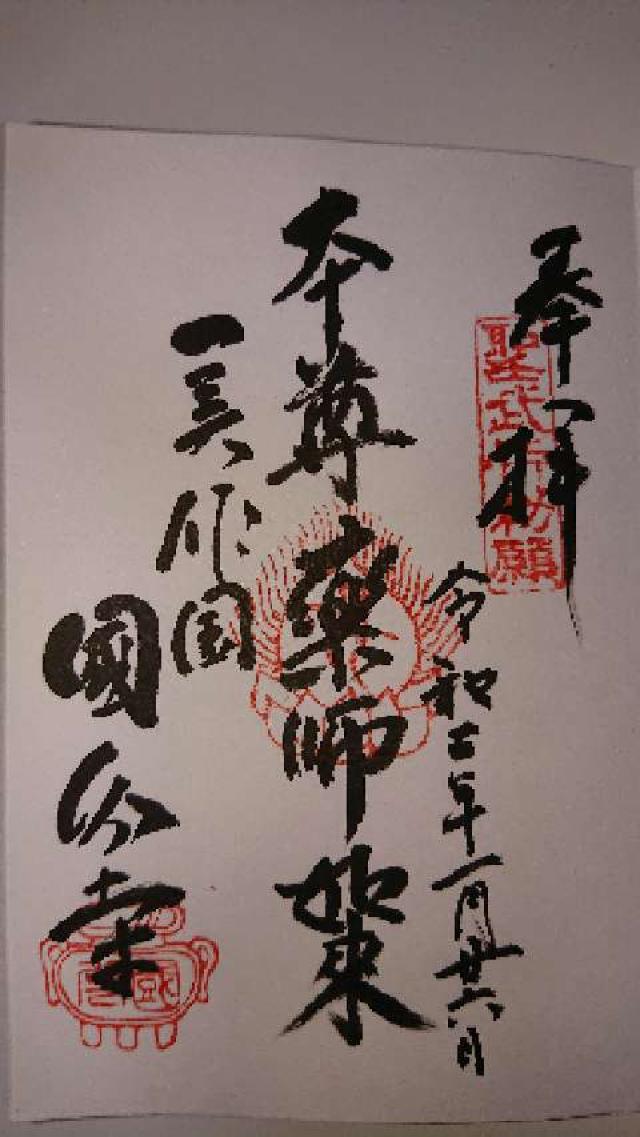 奉拝
聖武帝勅願
令和二年一月廿六日
本尊薬師如来
美作国
國分寺